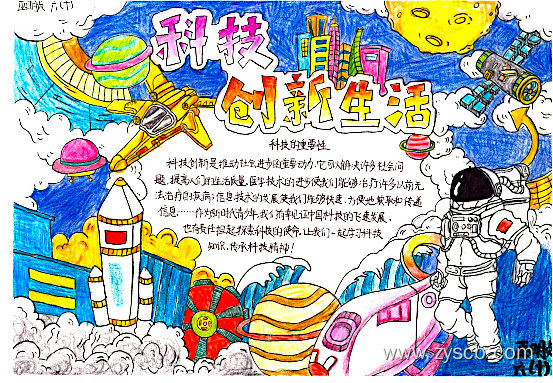 科技
创新生活
科技的重要性
科技创新是推动社会进步的重要动力,它可以解决许多社会问
题,提高人们的生活质量,医学技术的进步使我们能够治疗许多以前无
法治疗的疾病;信息技术的发展使我们能够快速、方便地获取和传递
信息……作为新时代青少年,我们有幸见证中国科技的飞速发展,
也有责任担起探索科技的使命,让我们一起学习科技
知识,传承科技精神!
www.zyscb.com
六(1)